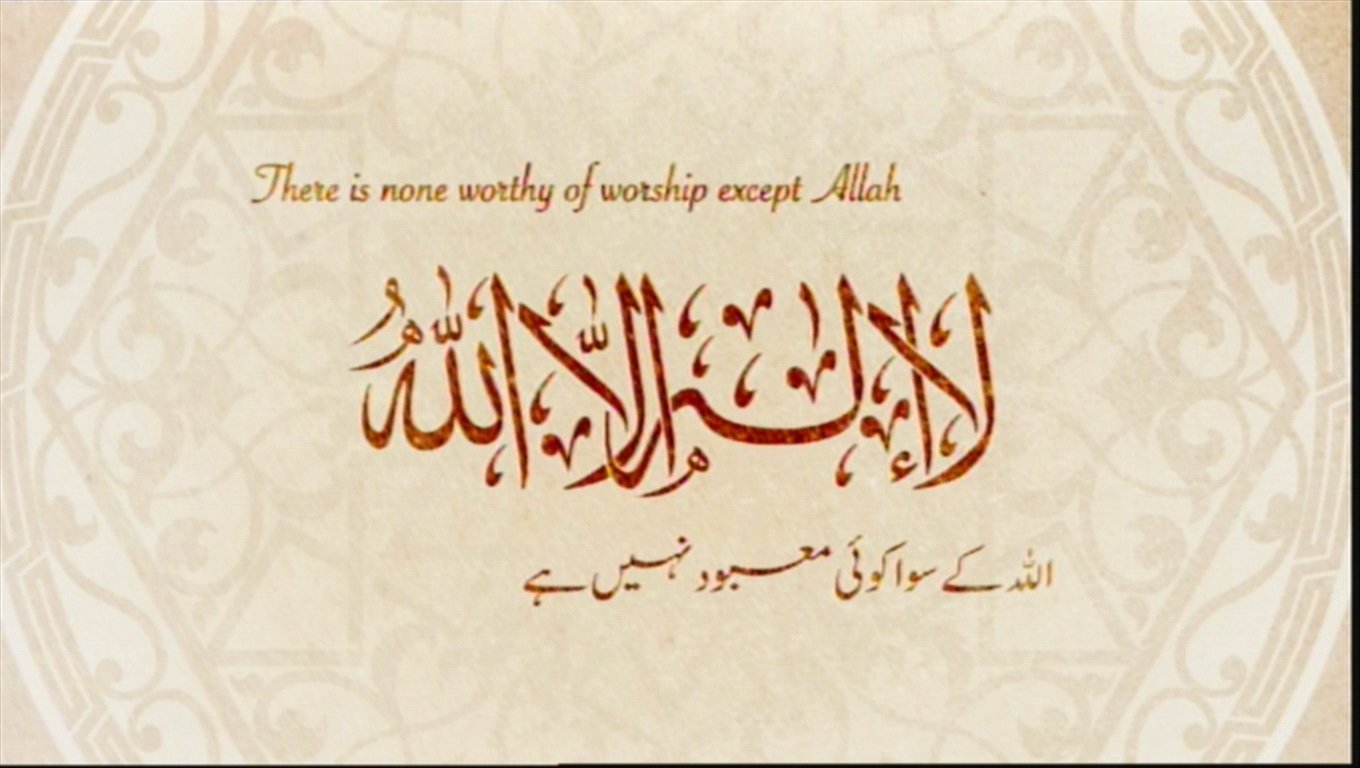 There is none worthy of worship except Allah
لا إله إلا الله
الله کے سوا کوئی معبود نہیں ہے